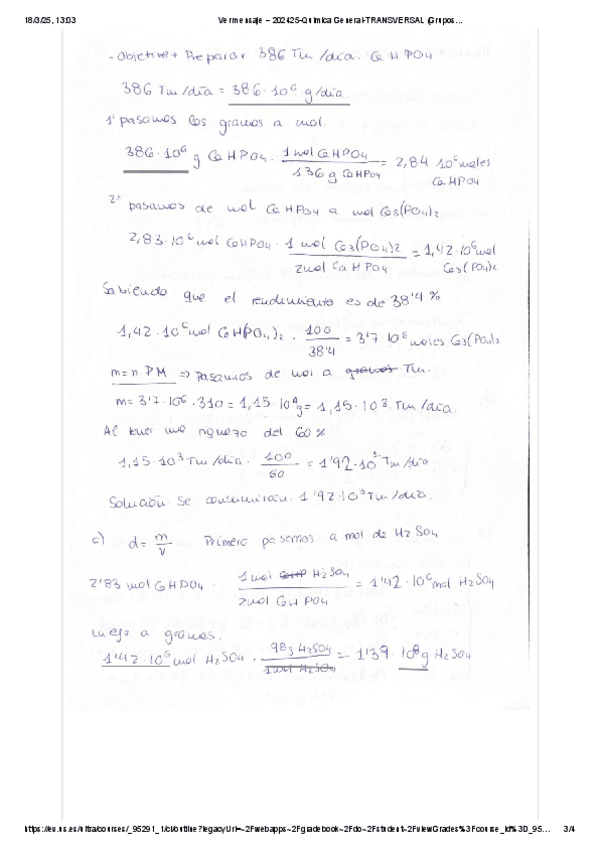 18/3/25, 13:03 Ver mensaje – 202425-Química General-TRANSVERSAL (Grupos...
- Objetivo → Preparar 386 Tm/día. CaHPO4
386 Tm/día = 386·10⁶ g/día.
1º pasamos los gramos a mol.
386·10⁶ g CaHPO4 · 1 mol CaHPO4 / 136 g CaHPO4 = 2,84 10⁶ moles CaHPO4
2º pasamos de mol CaHPO4 a mol Ca3(PO4)2
2,83·10⁶ mol CaHPO4 · 1 mol Ca3(PO4)2 / 2 mol CaHPO4 = 1,42·10⁶ mol Ca3(PO4)2
Sabiendo que el rendimiento es de 38'4 %
1,42·10⁶ mol CaH(PO4)2 · 100 / 38'4 = 3'7·10⁶ moles Ca3(PO4)2
m = n·PM => Pasamos de mol a gramos Tm.
m = 3'7·10⁶·310 = 1,15·10⁹ g = 1,15·10³ Tm/día.
Al tener una riqueza del 60 %
1,15·10³ Tm/día · 100 / 60 = 1'92·10³ Tm/día
Solución se consumirán 1'92·10³ Tm/día.
c) d = m/v Primero pasamos a mol de H2SO4
2'83 mol CaHPO4 · 1 mol H2SO4 / 2 mol CaHPO4 = 1'42·10⁶ mol H2SO4
luego a gramos.
1'42·10⁶ mol H2SO4 · 98g H2SO4 / 1 mol H2SO4 = 1'39·10⁸ g H2SO4
https://ev.us.es/ultra/courses/_95291_1/cl/outline?legacyUrl=~2Fwebapps~2Fgradebook~2Fdo~2Fstudent~2FviewGrades%3Fcourse_id%3D_95... 3/4